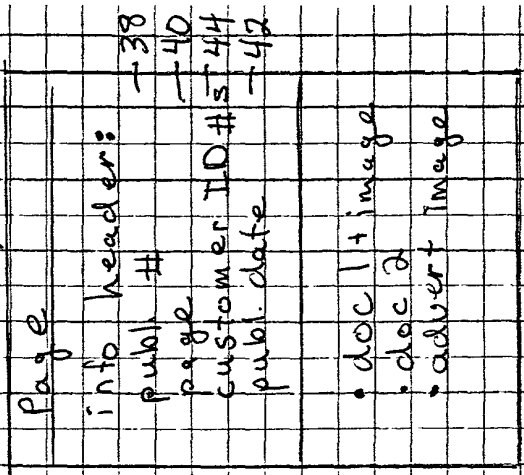 Page
info header:
publ. # — 38
page — 40
customer ID #s — 44
publ. date — 42
• doc 1 + image
• doc 2
• advert image